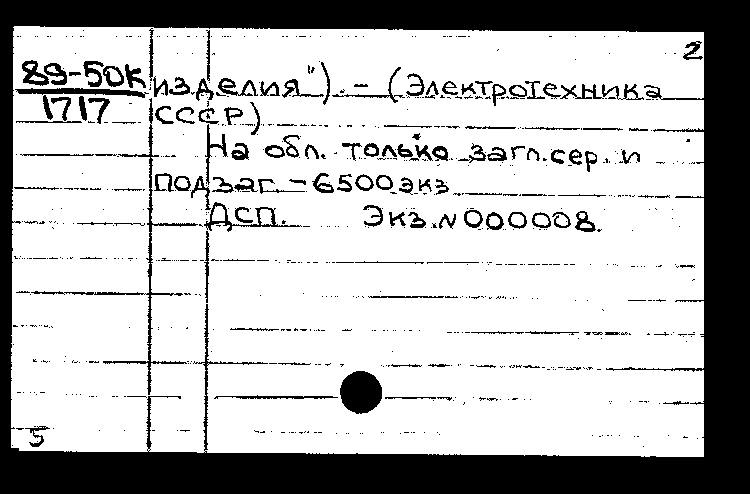 2
89-50К изделия"). – (Электротехника
1717 СССР)
На обл. только загл. сер. и
подзаг. – 6500 экз
ДСП. Экз. N 000008.
5